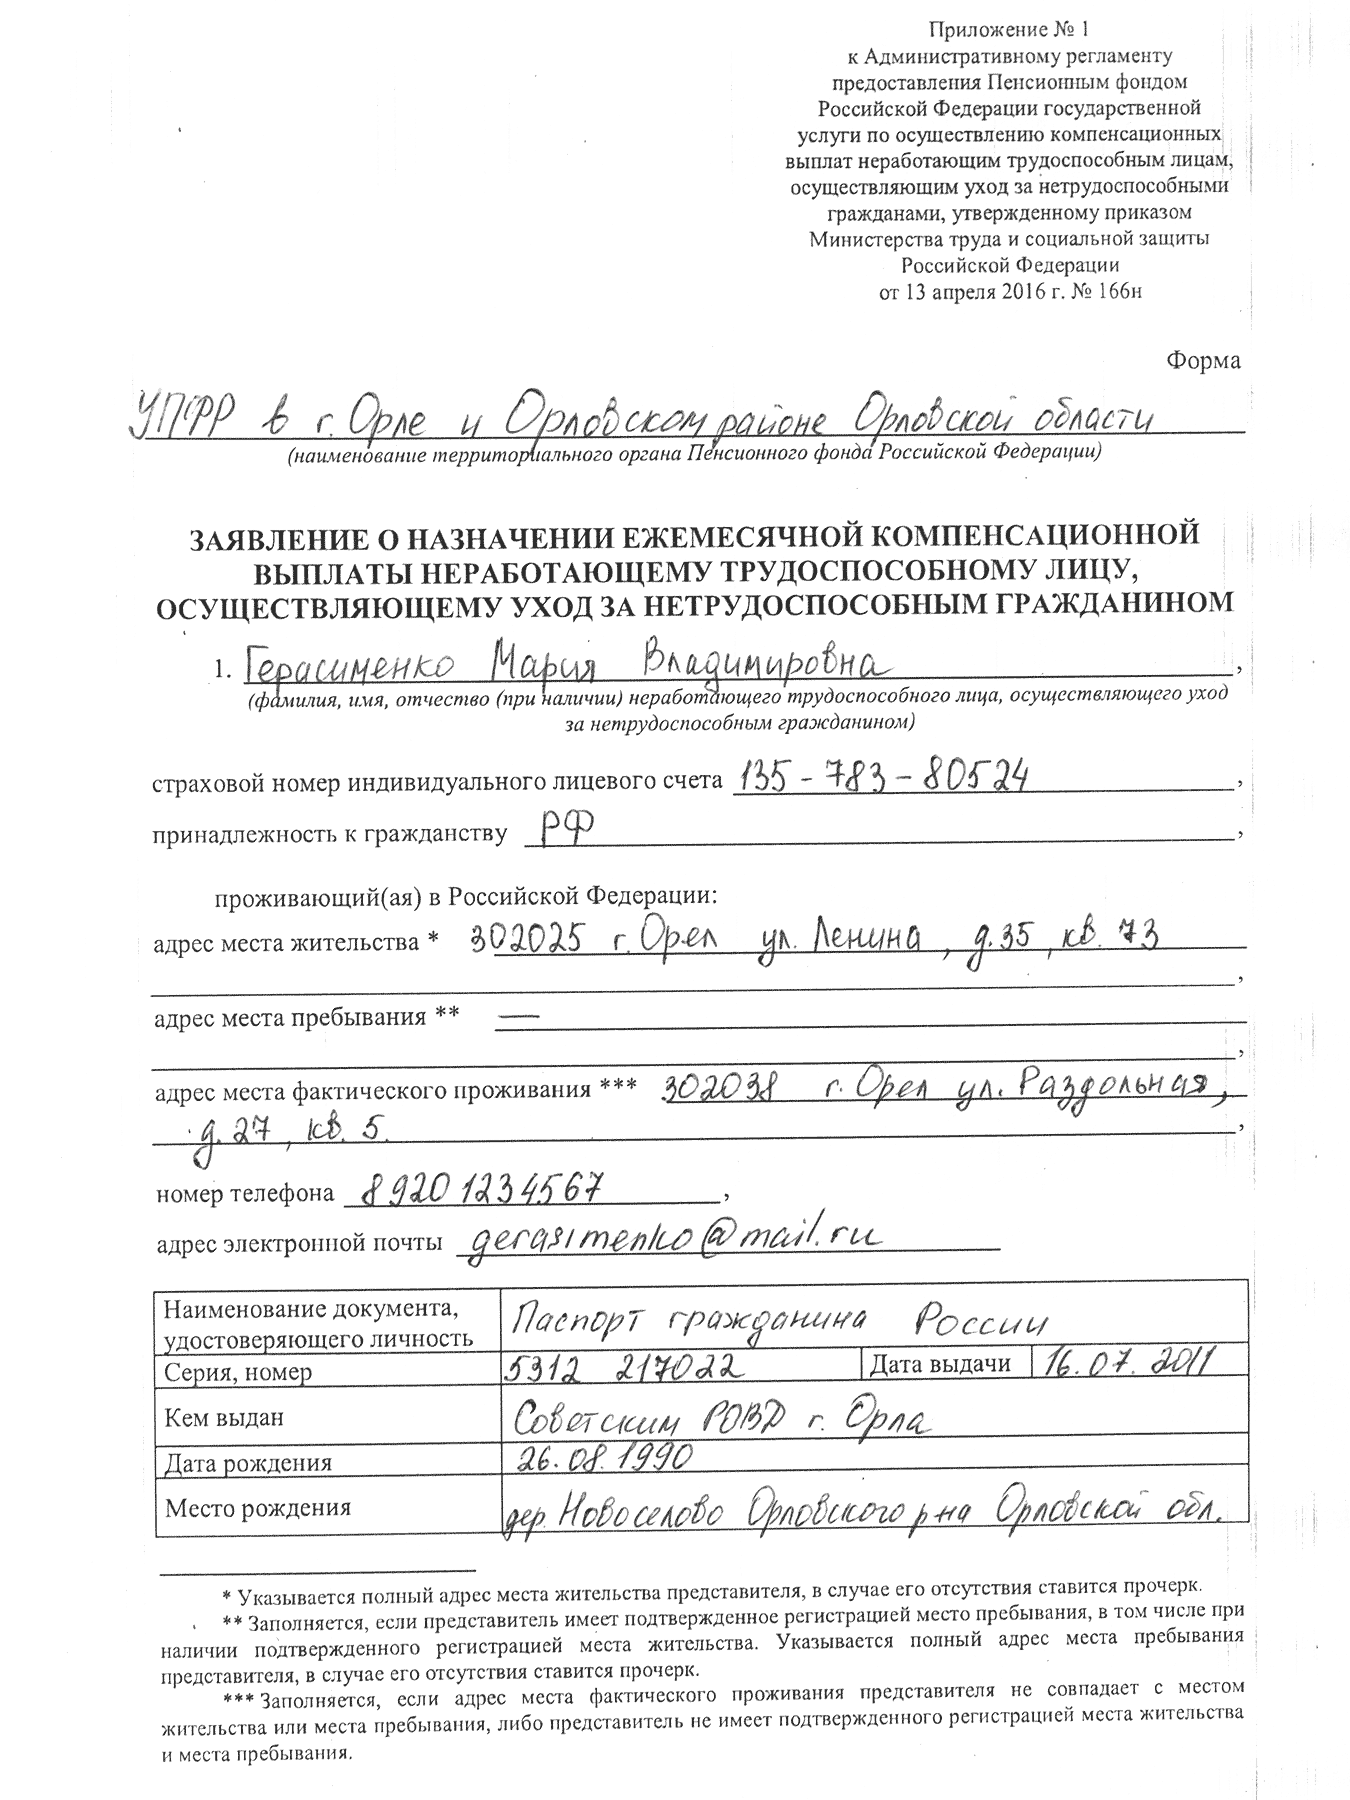 Приложение № 1
к Административному регламенту
предоставления Пенсионным фондом
Российской Федерации государственной
услуги по осуществлению компенсационных
выплат неработающим трудоспособным лицам,
осуществляющим уход за нетрудоспособными
гражданами, утвержденному приказом
Министерства труда и социальной защиты
Российской Федерации
от 13 апреля 2016 г. № 166н
Форма
УПФР в г. Орле и Орловском районе Орловской области
(наименование территориального органа Пенсионного фонда Российской Федерации)
ЗАЯВЛЕНИЕ О НАЗНАЧЕНИИ ЕЖЕМЕСЯЧНОЙ КОМПЕНСАЦИОННОЙ
ВЫПЛАТЫ НЕРАБОТАЮЩЕМУ ТРУДОСПОСОБНОМУ ЛИЦУ,
ОСУЩЕСТВЛЯЮЩЕМУ УХОД ЗА НЕТРУДОСПОСОБНЫМ ГРАЖДАНИНОМ
1. Герасименко Мария Владимировна,
(фамилия, имя, отчество (при наличии) неработающего трудоспособного лица, осуществляющего уход
за нетрудоспособным гражданином)
страховой номер индивидуального лицевого счета 135-783-80524,
принадлежность к гражданству РФ,
проживающий(ая) в Российской Федерации:
адрес места жительства * 302025 г. Орел ул. Ленина, д. 35, кв. 73
,
адрес места пребывания ** —
,
адрес места фактического проживания *** 302038 г. Орел ул. Раздольная,
д. 27, кв. 5.,
номер телефона 89201234567,
адрес электронной почты gerasimenko@mail.ru
Наименование документа,
удостоверяющего личность Паспорт гражданина России
Серия, номер 5312 217022 Дата выдачи 16.07.2011
Кем выдан Советским РОВД г. Орла
Дата рождения 26.08.1990
Место рождения дер. Новоселово Орловского р-на Орловской обл.
* Указывается полный адрес места жительства представителя, в случае его отсутствия ставится прочерк.
** Заполняется, если представитель имеет подтвержденное регистрацией место пребывания, в том числе при
наличии подтвержденного регистрацией места жительства. Указывается полный адрес места пребывания
представителя, в случае его отсутствия ставится прочерк.
*** Заполняется, если адрес места фактического проживания представителя не совпадает с местом
жительства или места пребывания, либо представитель не имеет подтвержденного регистрацией места жительства
и места пребывания.